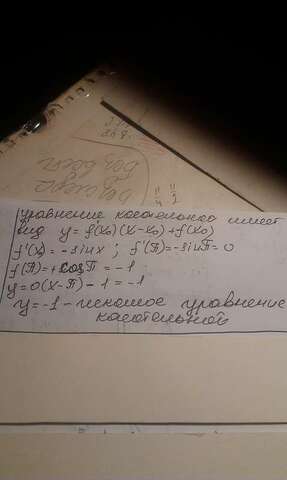 уравнение касательной имеет
вид y = f(x₀)(x-x₀)+f(x₀)
f'(x) = -sin x ; f'(π)=-sinπ=0
f(π)=+cosπ = -1 ;
y=0(x-π)-1=-1
y=-1 - искомое уравнение
касательной